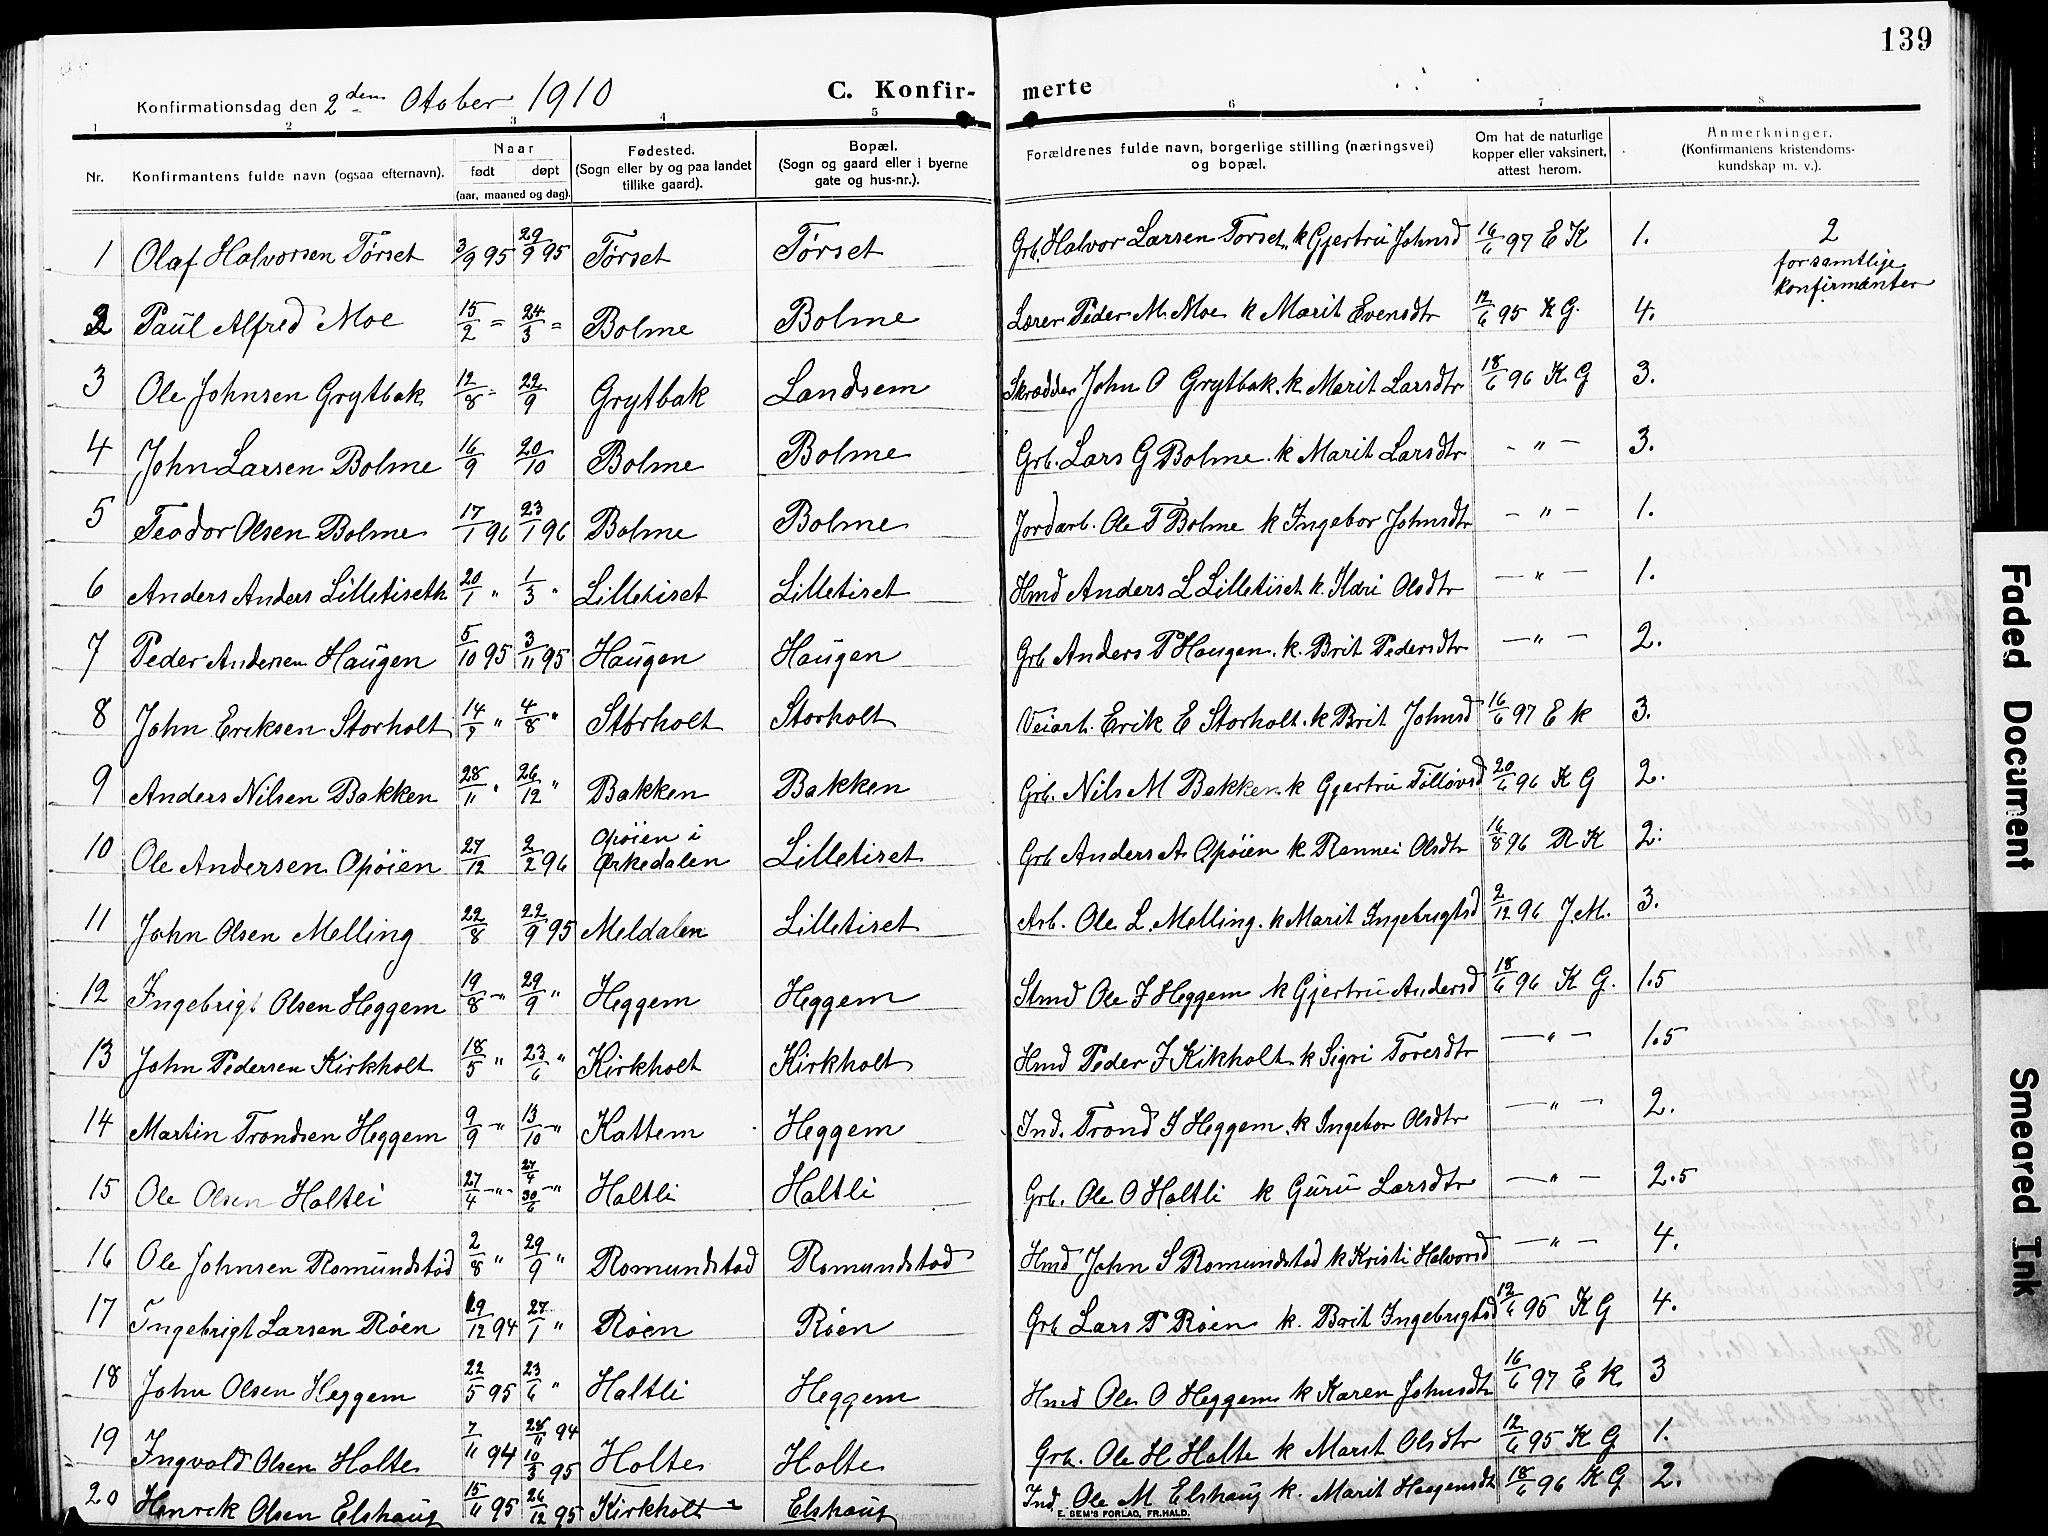 139
Konfirmationsdag den 2den Otober 1910 C. Konfir- merte
1 2 3 4 5 6 7 8
Nr. Konfirmantens fulde navn (ogsaa efternavn). Naar født døpt (aar, maaned og dag). Fødested. (Sogn eller by og paa landet tillike gaard). Bopæl. (Sogn og gaard eller i byerne gate og hus-nr.). Forældrenes fulde navn, borgerlige stilling (næringsvei) og bopæl. Om hat de naturlige kopper eller vaksinert, attest herom. Anmerkninger. (Konfirmantens kristendoms- kundskap m. v.).
1 Olaf Halvorsen Tørset 3/9 95 29/9 95 Tørset Tørset Grb. Halvor Larsen Torset, k Gjertru Johnsd 16/6 97 E K 1. 2 for samtlige konfirmanter
2 Paul Alfred Moe 15/2 = 24/3 = Bolme Bolme Lærer Peder M. Moe k Marit Evensdtr 12/6 95 K G. 4.
3 Ole Johnsen Grytbak 12/8 - 22/9 Grytbak Landsem Skrædder John O Grytbak. k. Marit Larsdtr 18/6 96 K G 3.
4 John Larsen Bolme 16/9 20/10 Bolme Bolme Grb. Lars G Bolme. k Marit Larsdtr - " - 3.
5 Teodor Olsen Bolme 17/1 96 23/1 96 Bolme Bolme Jordarb. Ole T Bolme k Ingebor Johnsdtr - " - 1.
6 Anders Anders Lilletiseth 20/1 " 1/3 " Lilletiset Lilletiset Hmd Anders L Lilletiset k. Kari Olsdtr - " - 1.
7 Peder Andersen Haugen 5/10 95 3/11 95 Haugen Haugen Grb Anders P Haugen. k. Brit Pedersdtr - " - 2.
8 John Eriksen Storholt 14/7 " 4/8 " Storholt Storholt Veiarb. Erik E Storholt. k Brit Johnsd 16/6 97 E k 3.
9 Anders Nilsen Bakken 28/11 " 26/12 " Bakken Bakken Grb. Nils M Bakken. k Gjertru Tollovsd 20/6 96 K G 2.
10 Ole Andersen Opöien 27/12 2/2 96 Opöien i Ørkedalen Lilletiset Grb Anders A. Opöien k Rannei Olsdtr 16/8 96 R K 2.
11 John Olsen Melling 22/8 22/9 95 Meldalen Lilletiset Arb. Ole L. Melling. k Marit Ingebrigtsd 2/12 96 J. M. 3.
12 Ingebrigt Olsen Heggem 19/8 -"- 29/9 " Heggem Heggem Stmd Ole I Heggem k Gjertru Andersd 18/6 96 K G. 1.5
13 John Pedersen Kirkholt 18/5 " 23/6 " Kirkholt Kirkholt Hmd Peder I Kikholt k Sigri Toresdtr - " - 1.5
14 Martin Trondsen Heggem 9/9 -"- 13/10 -"- Kattem Heggem Ind. Trond I Heggem. k Ingebor Olsdtr - " - 2.
15 Ole Olsen Holtli 27/4 -"- 27/4 30/6 -"- Holtli Holtli Grb. Ole O Holtli k Guru Larsdtr - " - 2.5
16 Ole Johnsen Romundstad 2/8 " 29/9 " Romundstad Romundstad Hmd John S Romundstad k Kristi Halvorsd - " - 4.
17 Ingebrigt Larsen Röen 19/12 94 27/1 " Röen Röen Grb Lars P Röen k. Brit Ingebrigtsd 12/6 95 K G 4.
18 John Olsen Heggem 22/5 95 23/6 " Holtli Heggem Hmd Ole O Heggem k Karen Johnsdtr 16/6 97 E k 3
19 Ingvald Olsen Holte 7/11 94 28/11 94 10/3 95 Holte Holte Grb. Ole H Holte k Marit Olsdtr 12/6 95 K G 1.
20 Henrek Olsen Elshaug 15/11 95 26/12 95 Kirkholt Elshaug Ind. Ole M Elshaug k. Marit Haagensdt 18/6 96 K G 2.
E. SEM'S FORLAG, FR.HALD.
Faded Document
Smeared Ink